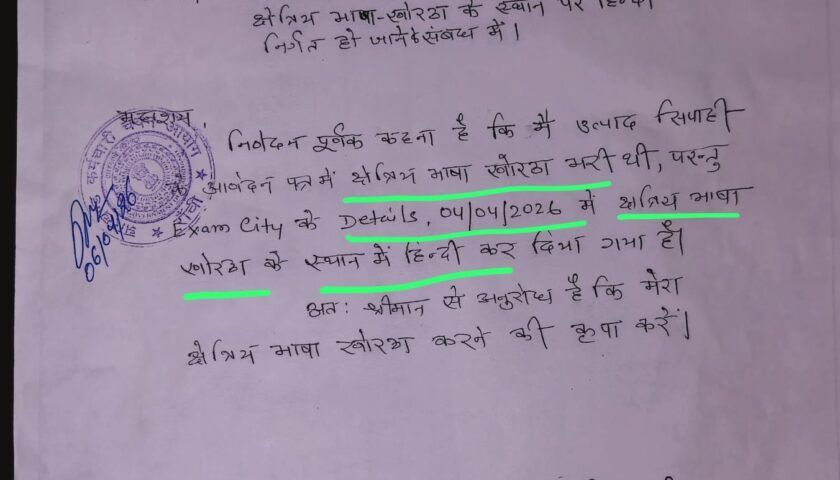 क्षेत्रिय भाषा-खोरठा के स्थान पर हिन्दी
निर्गत हो जाने के संबध में।
महाशय,
निवेदन पूर्वक कहना है कि मैं उत्पाद सिपाही
के आवेदन पत्र में क्षेत्रिय भाषा खोरठा भरी थी, परन्तु
Exam City के Details, 04/04/2026 में क्षेत्रिय भाषा
खोरठा के स्थान में हिन्दी कर दिया गया है।
अतः श्रीमान से अनुरोध है कि मेरा
क्षेत्रिय भाषा खोरठा करने की कृपा करें।
कर्मचारी चयन आयोग
राँची